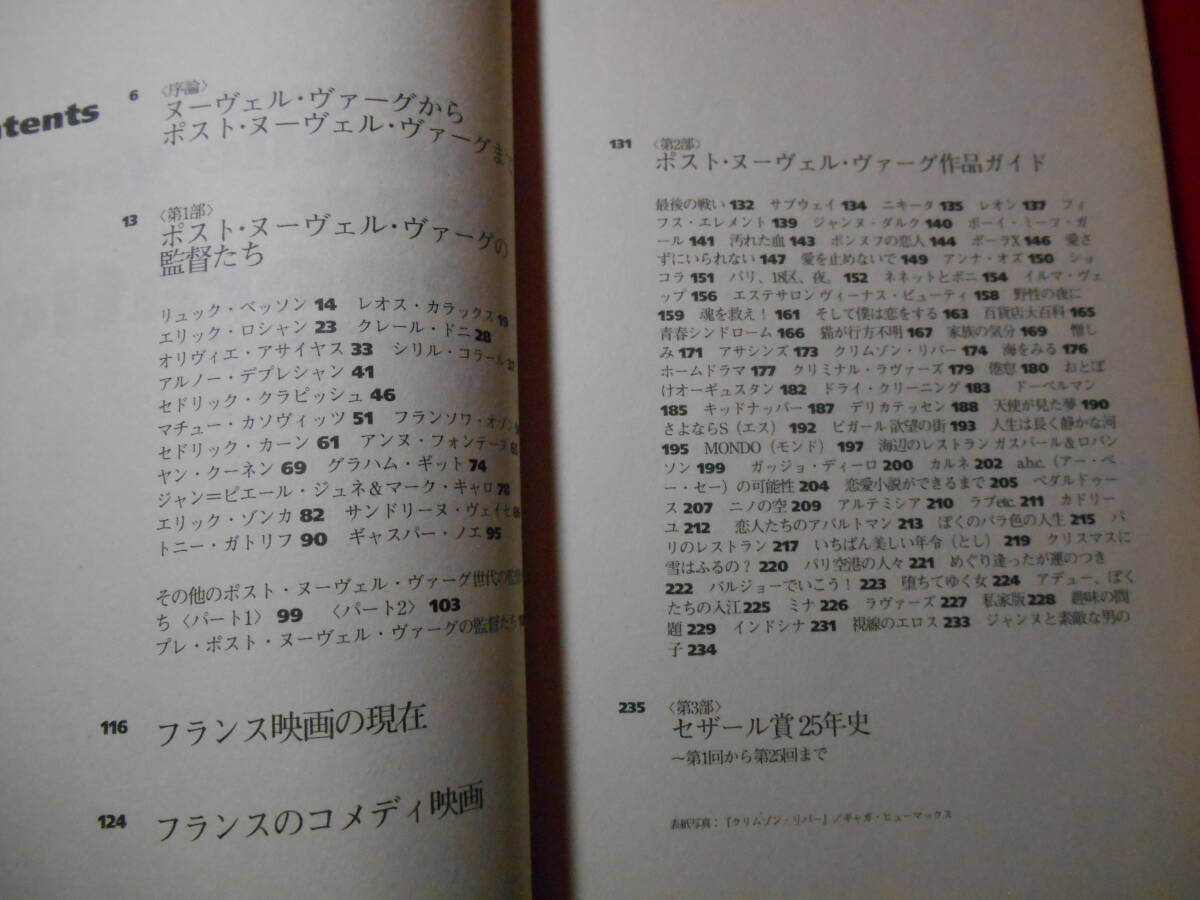 ntents
6 〈序論〉
ヌーヴェル・ヴァーグから
ポスト・ヌーヴェル・ヴァーグま
13 〈第1部〉
ポスト・ヌーヴェル・ヴァーグの
監督たち
リュック・ベッソン 14 レオス・カラックス 19
エリック・ロシャン 23 クレール・ドニ 28
オリヴィエ・アサイヤス 33 シリル・コラール
アルノー・デプレシャン 41
セドリック・クラピッシュ 46
マチュー・カソヴィッツ 51 フランソワ・オゾン
セドリック・カーン 61 アンヌ・フォンテーヌ
ヤン・クーネン 69 グラハム・ギット 74
ジャン＝ピエール・ジュネ&マーク・キャロ 78
エリック・ゾンカ 82 サンドリーヌ・ヴェイセ
トニー・ガトリフ 90 ギャスパー・ノエ 95
その他のポスト・ヌーヴェル・ヴァーグ世代の監督
ち〈パート1〉 99 〈パート2〉 103
プレ・ポスト・ヌーヴェル・ヴァーグの監督たち
116 フランス映画の現在
124 フランスのコメディ映画
131 〈第2部〉
ポスト・ヌーヴェル・ヴァーグ作品ガイド
最後の戦い 132 サブウェイ 134 ニキータ 135 レオン 137 フィ
フス・エレメント 139 ジャンヌ・ダルク 140 ボーイ・ミーツ・ガ
ール 141 汚れた血 143 ポンヌフの恋人 144 ポーラX 146 愛さ
ずにいられない 147 愛を止めないで 149 アンナ・オズ 150 ショ
コラ 151 パリ、18区、夜。 152 ネネットとボニ 154 イルマ・ヴェ
ップ 156 エステサロン ヴィーナス・ビューティ 158 野性の夜に
159 魂を救え！ 161 そして僕は恋をする 163 百貨店大百科 165
青春シンドローム 166 猫が行方不明 167 家族の気分 169 憎し
み 171 アサシンズ 173 クリムゾン・リバー 174 海をみる 176
ホームドラマ 177 クリミナル・ラヴァーズ 179 倦怠 180 おとぼ
けオーギュスタン 182 ドライ・クリーニング 183 ドーベルマン
185 キッドナッパー 187 デリカテッセン 188 天使が見た夢 190
さよならS（エス） 192 ピガール 欲望の街 193 人生は長く静かな河
195 MONDO（モンド） 197 海辺のレストラン ガスパール&ロバン
ソン 199 ガッジョ・ディーロ 200 カルネ 202 a.b.c.（アー・ベ
ー・セー）の可能性 204 恋愛小説ができるまで 205 ペダルドゥー
ス 207 ニノの空 209 アルテミシア 210 ラブetc. 211 カドリー
ユ 212 恋人たちのアパルトマン 213 ぼくのバラ色の人生 215 パ
リのレストラン 217 いちばん美しい年令（とし） 219 クリスマスに
雪はふるの？ 220 パリ空港の人々 221 めぐり逢ったが運のつき
222 バルジョーでいこう！ 223 堕ちてゆく女 224 アデュー、ぼく
たちの入江 225 ミナ 226 ラヴァーズ 227 私家版 228 趣味の問
題 229 インドシナ 231 視線のエロス 233 ジャンヌと素敵な男の
子 234
235 〈第3部〉
セザール賞25年史
～第1回から第25回まで
表紙写真：『クリムゾン・リバー』／ギャガ・ヒューマックス